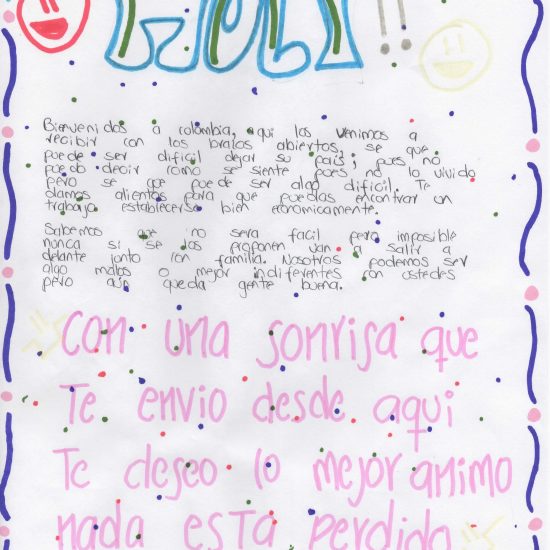 HOLA!!
Bienvenidos a colombia, aqui los venimos a
recibir con los brazos abiertos, se que
puede ser dificil dejar su pais, pues no
puedo decir como se siente pues no lo vivido
pero se que puede ser algo dificil. Te
damos alientos para que puedas encontrar un
trabajo establecerse bien economicamente.
Sabemos que no sera facil pero imposible
nunca si se los proponen van a salir a
delante junto con familia. Nosotros podemos ser
algo malos o mejor indiferentes con ustedes
pero aún queda gente buena.
Con una sonrisa que
Te envio desde aqui
Te deseo lo mejor animo
nada esta perdido